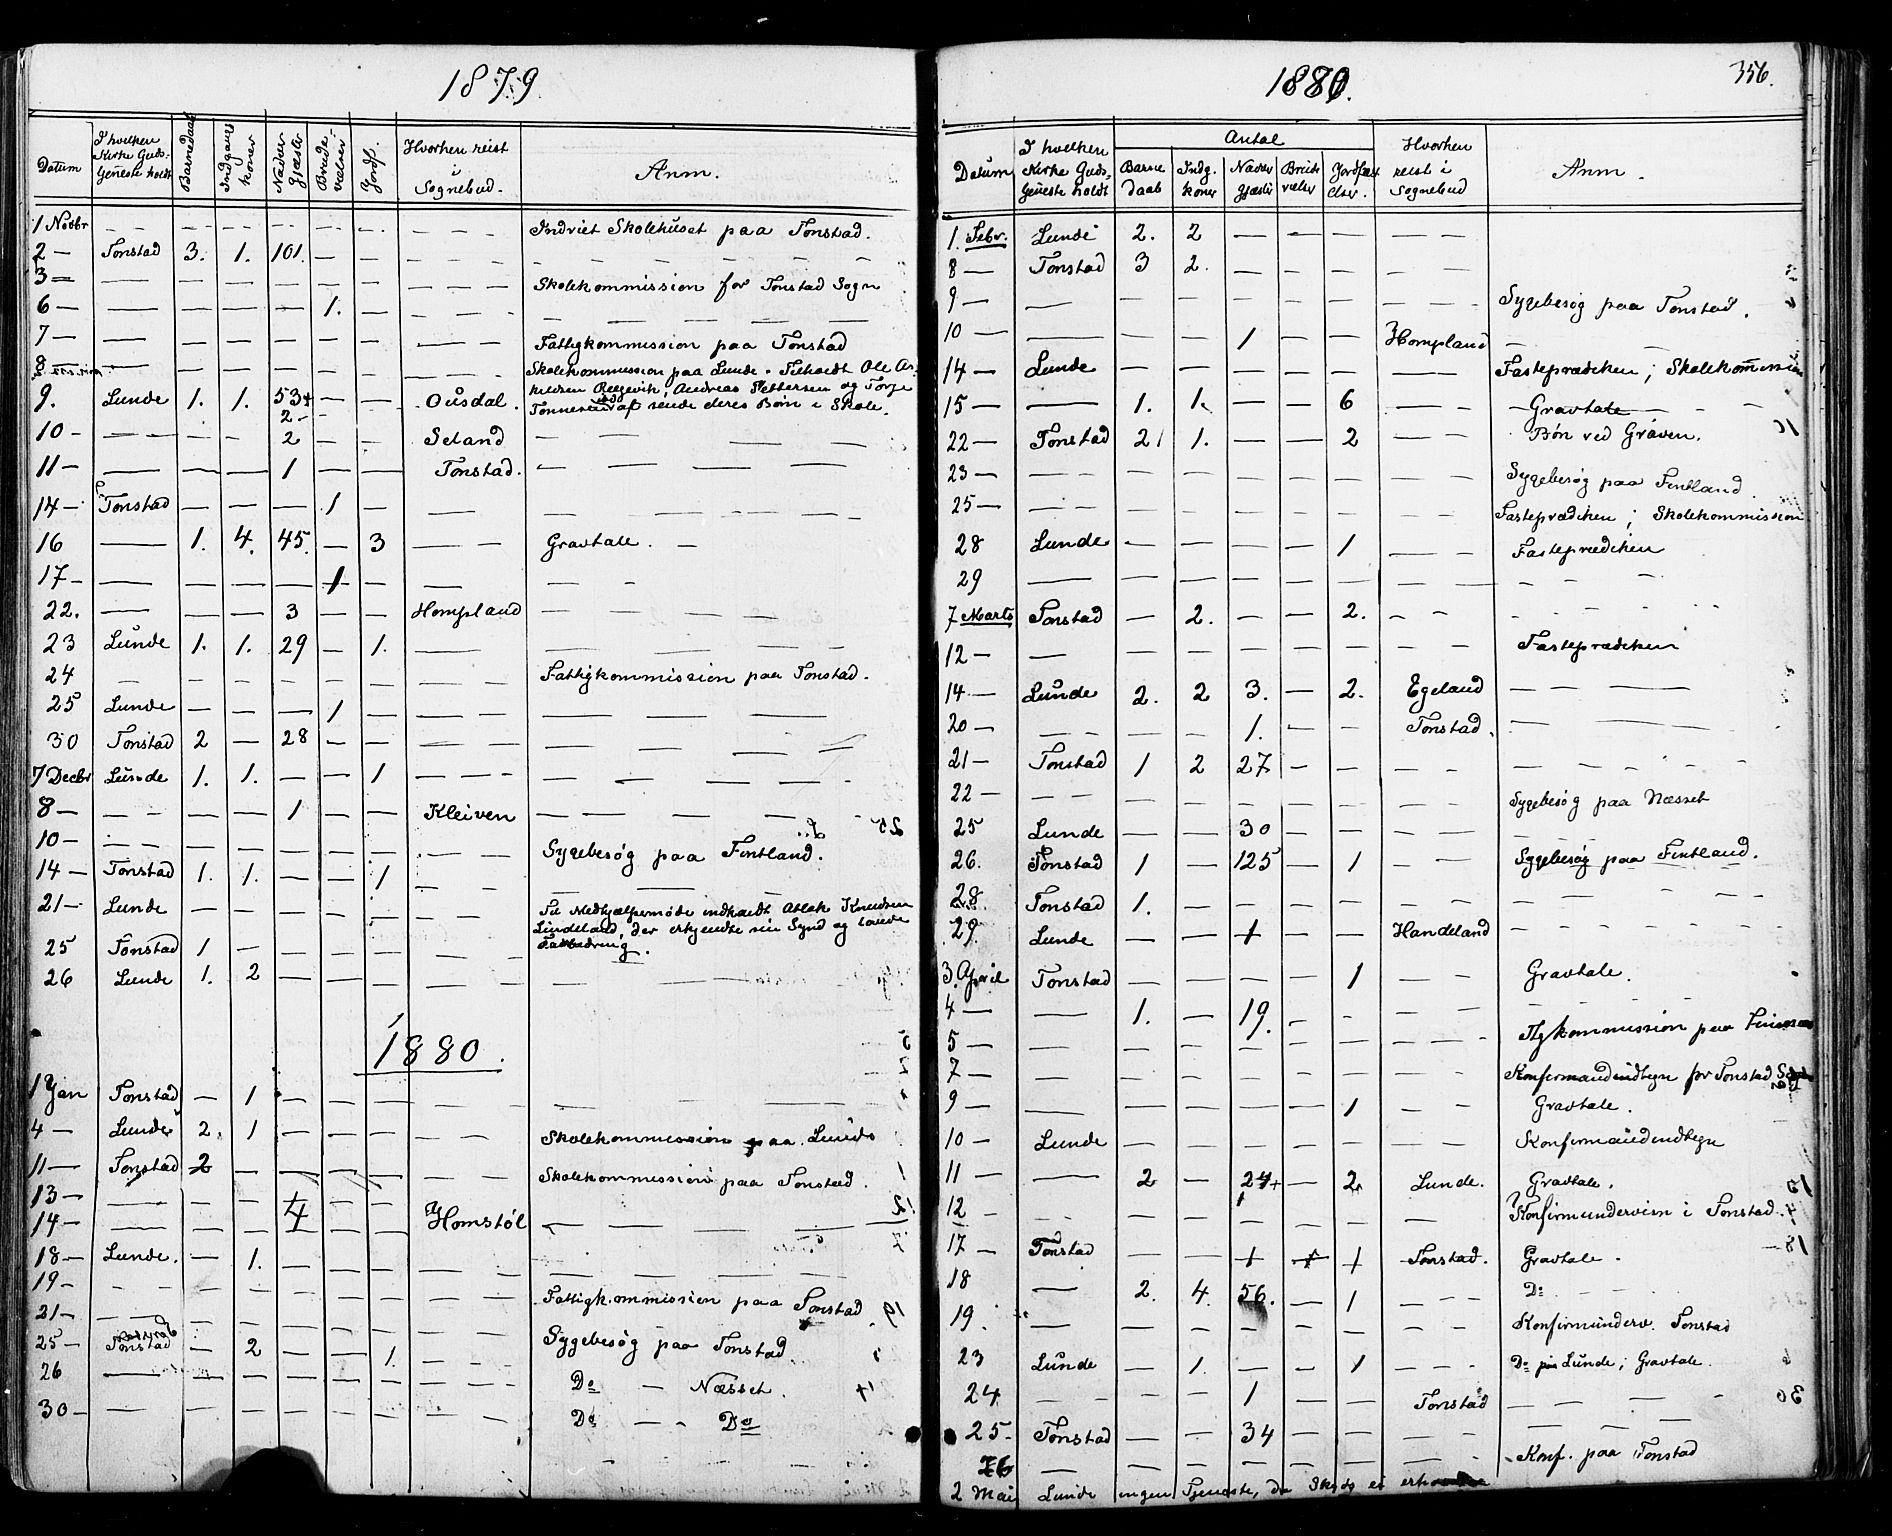 1879.
Datum | I hvilken Kirke Guds-tjeneste holdt | Barnedaab | Indgangs koner | Nadver gjæster | Brude-vielser | Jordf. | Hvorhen reist i Sognebud. | Anm.
1 Novbr — — — — — — — Indviet Skolehuset paa Tonstad.
2 — Tonstad 3. 1. 101. — — — —
3 — — — — — — — — Skolekommission for Tonstad Sogn
6 — — — — — 1. — — —
7 — — — — — — — — Fattigkommission paa Tonstad
8 — — — — — — — — Skolekommission paa Lunde. Ole
Andreas Pettersen og Torje
9. Lunde 1. 1. 53+ — — Ousdal. af sende deres Børn i Skole.
2 -
10 - — — - 2 — — Seland — —
11 — — — — 1 — — Tonstad. — —
14 — Tonstad — — — 1 — — —
16 — 1. 4. 45. — 3 — Gravtale. —
17 — — — — — 1 — — —
22. — — — 3 — — Hompland — —
23 Lunde 1. 1. 29 — 1. — —
24 — — — — — — — Fattigkommission paa Tonstad.
25 Lunde — — — 1 — — —
30 Tonstad 2 — 28 — — — —
7 Decbr Lunde 1. 1. — — 1 — —
8 — — — — 1 — — Kleiven — —
10 — — — — — — — — Sygebesøg paa Fintland.
14 — Tonstad 1. 1. — — 1 — —
21 — Lunde — — — — — — Til Medhjælpermøde indkaldt Atlak Knudsen
Lindeland, der erkjendte sin Synd og lovede
25 Tonstad 1 — — — — — Forbedring.
26 Lunde 1. 2 — — — — —
1880.
1 Jan Tonstad — 1 — — — — —
4 — Lunde 2. 1 — — — — Skolekommission paa Lunde
11 — Tonstad 2 — — — — — Skolekommission paa Tonstad.
13 — — — — — — — —
14 — — — — 4 — — Homstøl — —
18 — Lunde. — 1. — — — — —
19 - - - - — — — — Fattigkommission paa Tonstad
21 — — — — — — — — Sygebesøg paa Tonstad
25 — Tonstad — 2 — — 1. — —
26 — — — — — — — Do — Næsset.
30 — — — — — — — — Do — - Do
1880.
356.
Datum | I hvilken Kirke Guds-tjeneste holdt | Antal | Barne daab | Indg. koner | Nadver gjæster | Brude vielser | Jordfæst elser. | Hvorhen reist i Sognebud | Anm.
1. Febr. Lunde 2. 2 — — — — —
8 — Tonstad 3 2. — — — — —
9 — — — — — — — — Sygebesøg paa Tonstad.
10 — — — — 1 — — Hompland — —
14 — Lunde — — — — — — Fasteprædiken; Skolekommission
15 — — 1. 1. — — 6 — Gravtale — —
22 — Tonstad 2 1. — — 2 — Bøn ved Graven.
23 — — — — — — — — Sygebesøg paa Fintland.
25 — — — — — — — — Fasteprædiken; Skolekommission
28 Lunde — — — — 1 — Fasteprædiken
29 — — — — — — — —
7 Marts Tonstad — 2. — — 2. — —
12 — — — — — — — — Fasteprædiken
14 — Lunde 2. 2 3. — 2. Egeland — —
20 — — — — 1. — — Tonstad. — —
21 — Tonstad 1 2 27 — — — —
22 — — — — — — — — Sygebesøg paa Næsset
25 Lunde — — 30 — — — —
26. Tonstad 1 — 125 — 1 — Sygebesøg paa Fintland.
28. Tonstad 1. — — — — — —
29. Lunde — — 1 — — Handeland — —
3. April Tonstad — — — — 1 — Gravtale.
4 — — 1. — 19. — — — —
5 — — — — — — — — kommission paa
7 — — — — — — — — Konfirmandindtegn for Tonstad
9 — — — — — — 1 — Gravtale.
10 — Lunde — — — — — — Konfirmandindtegn
11 — — 2 — 24+ — 2 Lunde. Gravtale.
1
12 — — — — — — — — Konfirmundervisn i Tonstad.
17 — Tonstad — — 1 1 1 Tonstad. Gravtale.
18 — 2. 4. 56. — 1 — Do
19. — — — — — — — Konfirmunderv. Tonstad
23 Lunde — 1. — — 1 — Do paa Lunde; Gravtale.
24 — — — 1 — — Tonstad — —
25 — Tonstad — — 34 — — — —
26 — — — — — — — Konf. paa Tonstad
2 Mai Lunde ingen Tjeneste, da Skyds ei